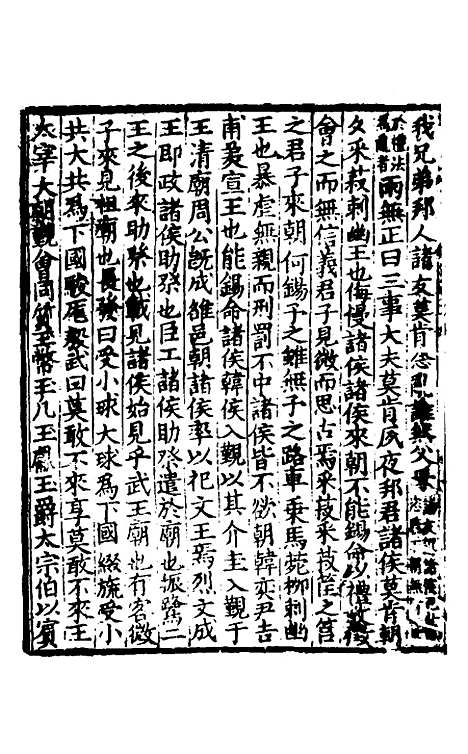 我兄弟邦人諸友莫肯念亂誰無父母
於禮法爲亂者雨無正曰三事大夫莫肯夙夜邦君諸侯莫肯朝
夕采菽刺幽王也侮慢諸侯諸侯來朝不能錫命以禮數徵
會之而無信義君子見微而思古焉采菽采菽筐之筥
之君子來朝何錫予之雖無予之路車乘馬菀柳刺幽
王也暴虐無親而刑罰不中諸侯皆不欲朝韓奕尹吉
甫美宣王也能錫命諸侯韓侯入覲以其介圭入覲于
王清廟周公既成雒邑朝諸侯率以祀文王焉烈文成
王即政諸侯助祭也臣工諸侯助祭遣於廟也振鷺二
王之後來助祭也載見諸侯始見乎武王廟也有客微
子來見祖廟也長發曰受小球大球為下國綴旒受小
共大共為下國駿厖殷武曰莫敢不來享莫敢不來王
太宰大朝覲會同贊玉幣玉几玉獻玉爵大宗伯以賓